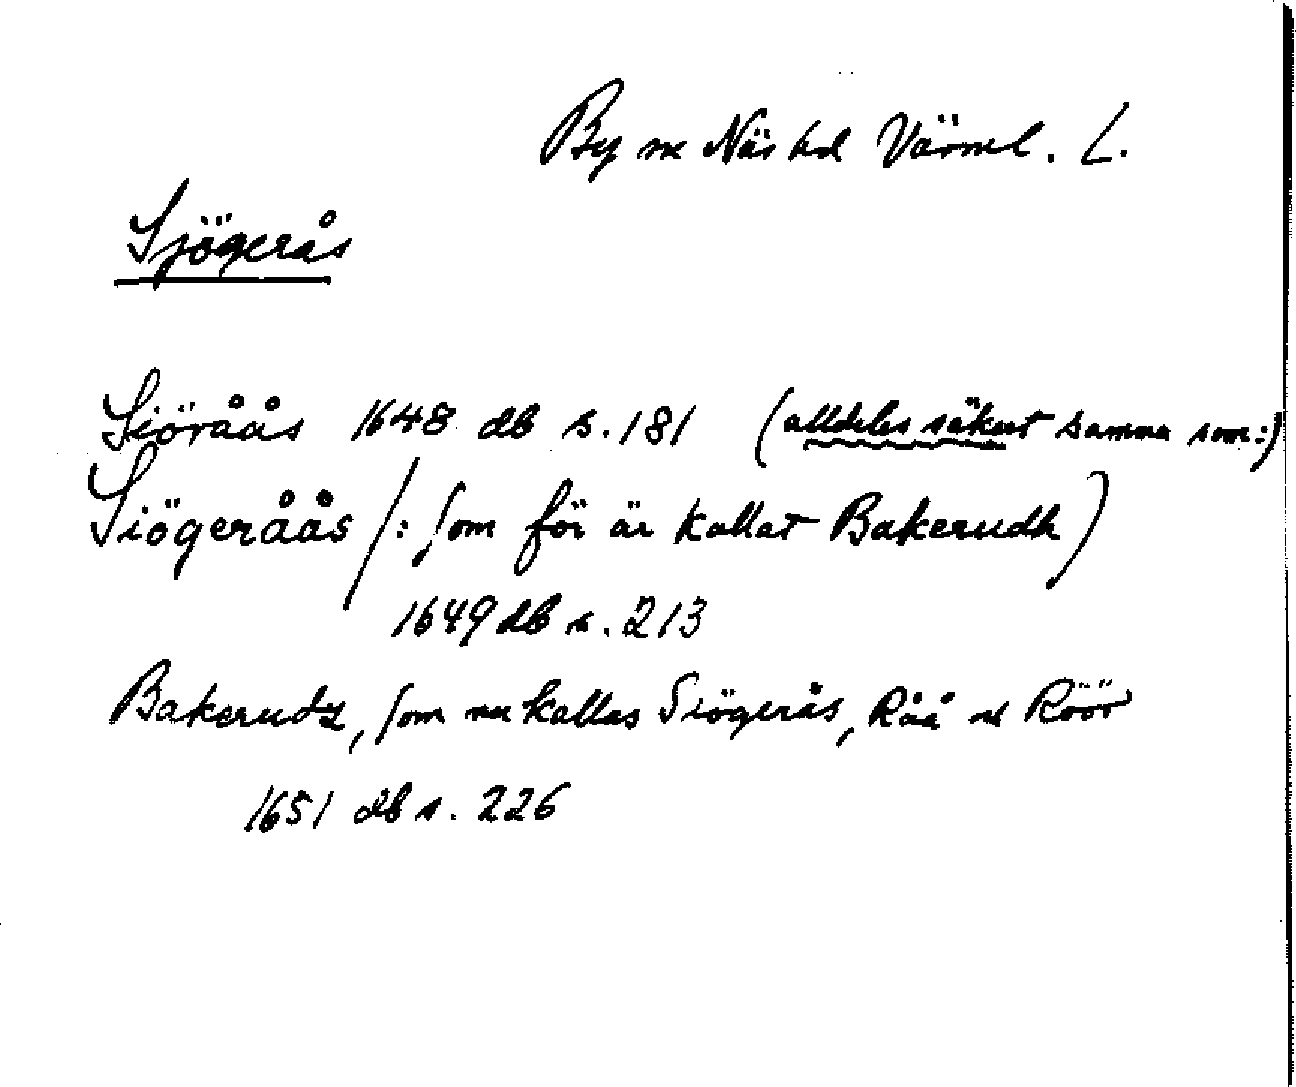 By sn Näs hd Värml. L.
Sjögerås
Siöråås 1648 db s. 181 (alldeles säkert samma som:)
Siögeråås /: som för är kallat Bakerudh)
1649 db s. 213
Bakerudz, som nu kallas Siögerås, Råå och Röör
1651 db s. 226